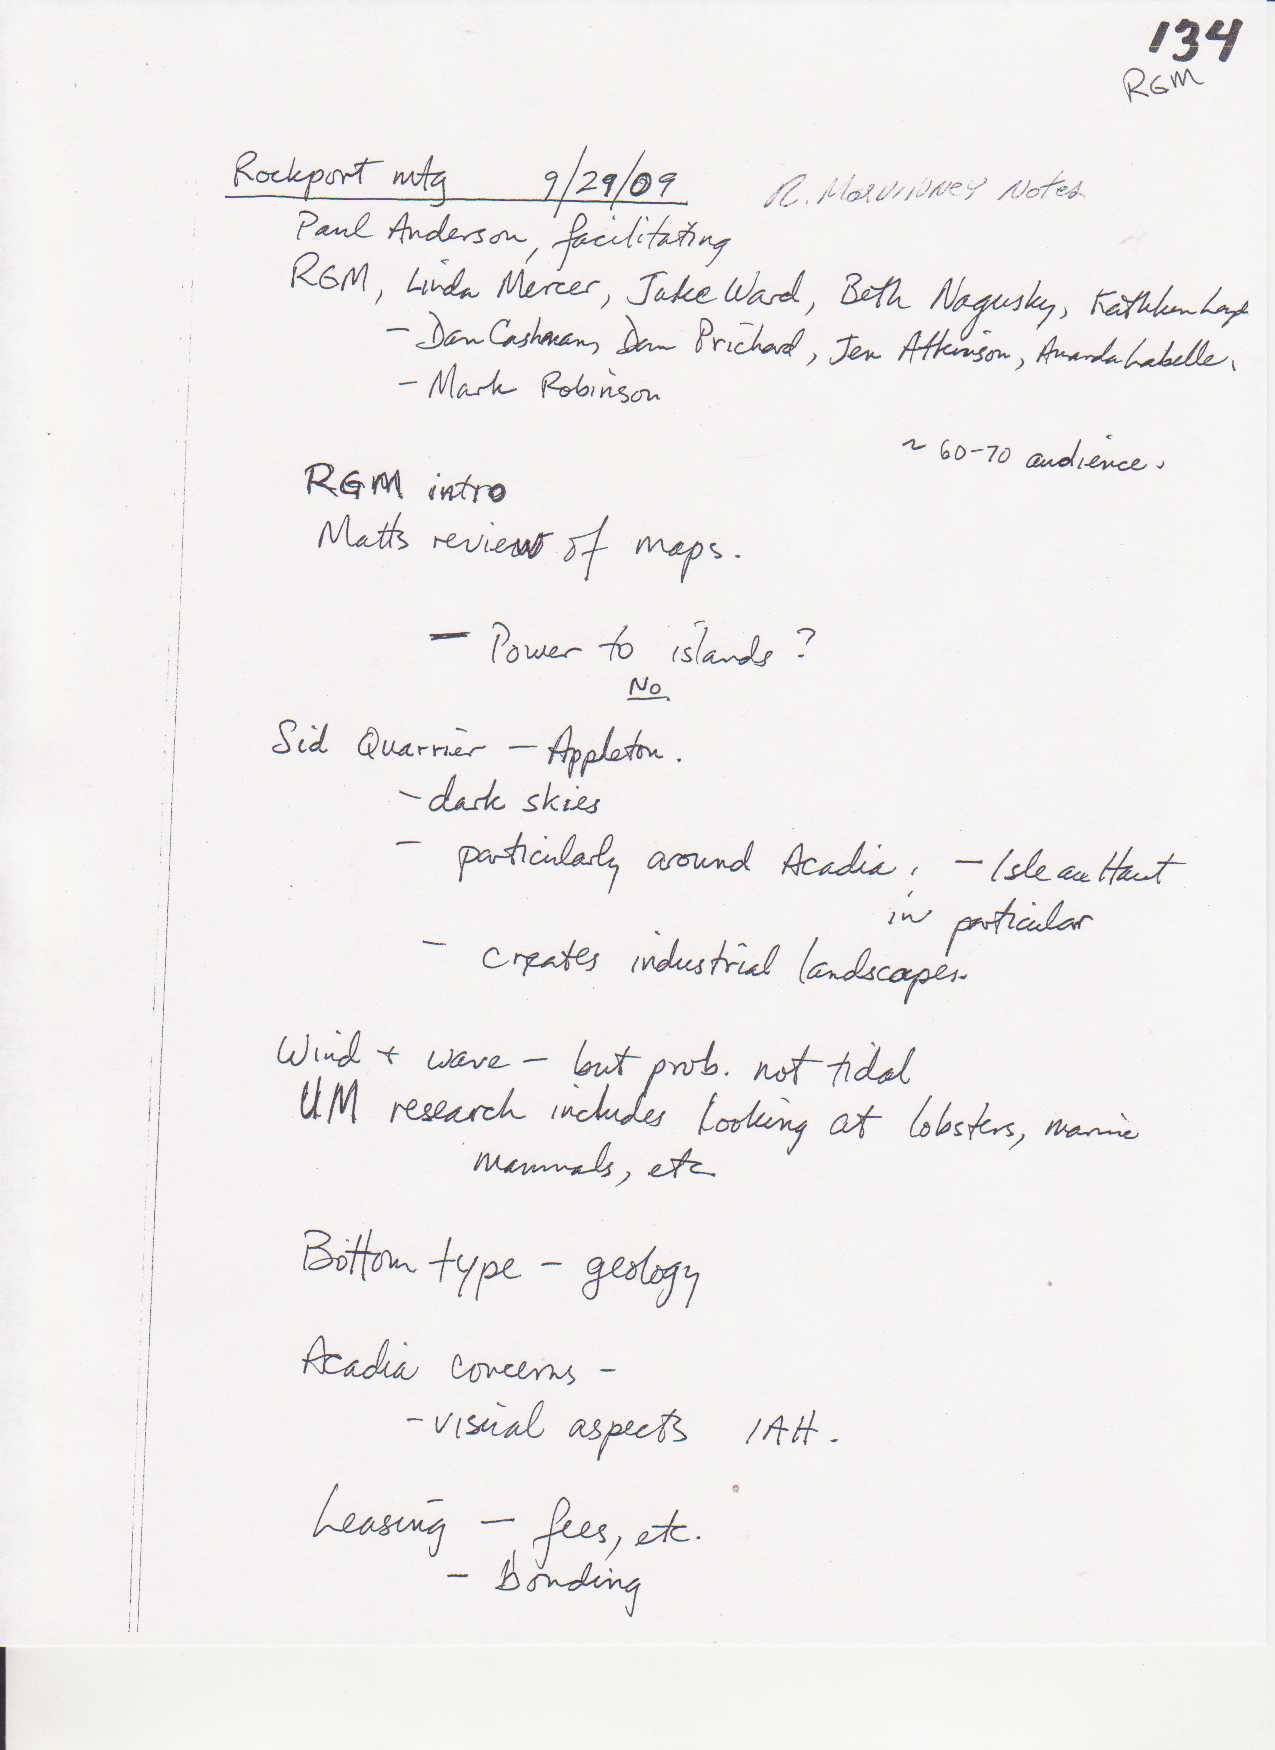 134
RGM
Rockport mtg 9/29/09 R. Marvinney Notes
Paul Anderson, facilitating
RGM, Linda Mercer, Jake Ward, Beth Nagusky, Kathleen
- Dan Cashman, Dan Prichard, Jen Atkinson, Amanda Labelle,
- Mark Robinson
~ 60-70 audience.
RGM intro
Matts review of maps.
- Power to islands?
No
Sid Quarrier - Appleton.
- dark skies
- particularly around Acadia, - Isle au Haut
in particular
- creates industrial landscapes.
Wind + wave - but prob. not tidal
UM research includes looking at lobsters, marine
mammals, etc
Bottom type - geology
Acadia concerns -
- visual aspects IAH.
Leasing - fees, etc.
- Bonding